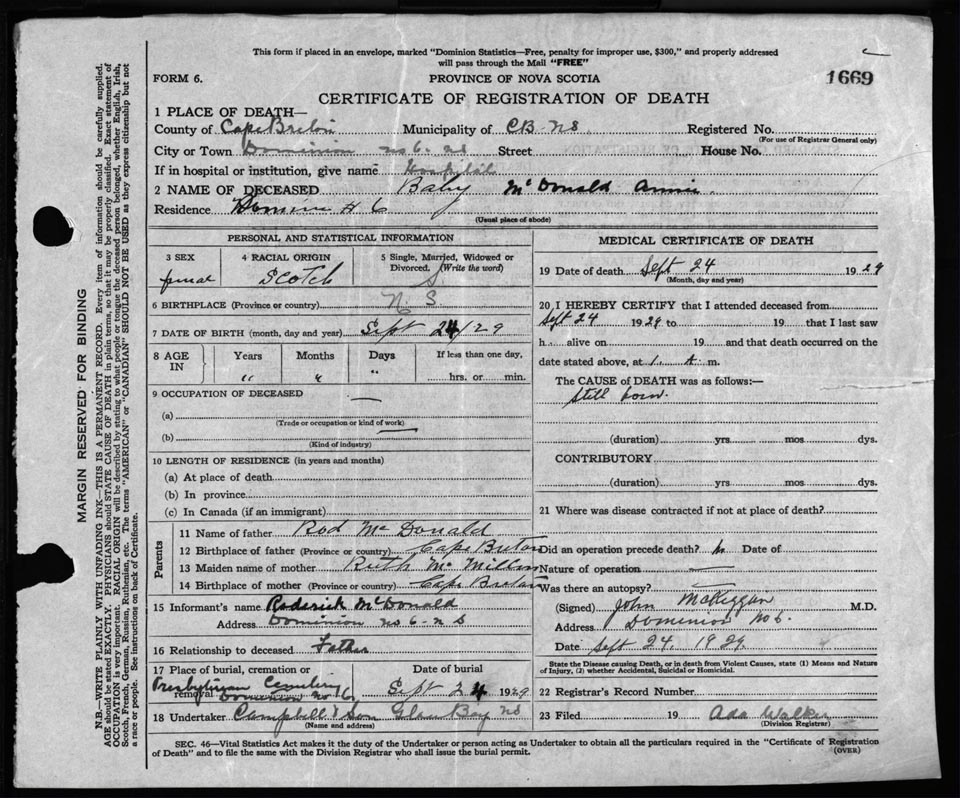 This form if placed in an envelope, marked "Dominion Statistics—Free, penalty for improper use, $300," and properly addressed
will pass through the Mail "FREE"
FORM 6.
PROVINCE OF NOVA SCOTIA
1669
CERTIFICATE OF REGISTRATION OF DEATH
1 PLACE OF DEATH—
County of Cape Breton Municipality of CB-NS Registered No.
(For use of Registrar General only)
City or Town Dominion No 6-NS Street House No.
If in hospital or institution, give name Hospital
2 NAME OF DECEASED Baby McDonald Annie
Residence # 6
(Usual place of abode)
PERSONAL AND STATISTICAL INFORMATION
3 SEX
4 RACIAL ORIGIN
5 Single, Married, Widowed or Divorced. (Write the word)
Scotch
S
6 BIRTHPLACE (Province or country) N. S
7 DATE OF BIRTH (month, day and year) Sept 24/29
8 AGE IN
Years
Months
Days
If less than one day,
" " "
hrs. or min.
9 OCCUPATION OF DECEASED —
(a)
(Trade or occupation or kind of work)
(b) —
(Kind of industry)
10 LENGTH OF RESIDENCE (in years and months)
(a) At place of death
(b) In province
(c) In Canada (if an immigrant)
Parents
11 Name of father Rod McDonald
12 Birthplace of father (Province or country) Cape Breton
13 Maiden name of mother Ruth McMillan
14 Birthplace of mother (Province or country) Cape Breton
15 Informant's name Roderick McDonald
Address Dominion No 6-NS
16 Relationship to deceased Father
17 Place of burial, cremation or removal Presbyterian Cemetery Dominion No 6
Date of burial
Sept 24 1929
18 Undertaker Campbell & Son Glace Bay NS
(Name and address)
MEDICAL CERTIFICATE OF DEATH
19 Date of death Sept 24 1929
(Month, day and year)
20 I HEREBY CERTIFY that I attended deceased from
Sept 24 1929 to 19 that I last saw
h alive on 19 and that death occurred on the
date stated above, at 1. A. m.
The CAUSE OF DEATH was as follows:—
Still born.
(duration) yrs mos dys.
CONTRIBUTORY
(duration) yrs. mos. dys.
21 Where was disease contracted if not at place of death?
Did an operation precede death? No Date of
Nature of operation —
Was there an autopsy? —
(Signed) John McKeggan M.D.
Address Dominion No 6.
Date Sept 24. 1929.
State the Disease causing Death, or in death from Violent Causes, state (1) Means and Nature
of Injury, (2) whether Accidental, Suicidal or Homicidal.
22 Registrar's Record Number
23 Filed 19 Ada Walker
(Division Registrar)
SEC. 46—Vital Statistics Act makes it the duty of the Undertaker or person acting as Undertaker to obtain all the particulars required in the "Certificate of Registration
of Death" and to file the same with the Division Registrar who shall issue the burial permit.
(OVER)
MARGIN RESERVED FOR BINDING
N.B.—WRITE PLAINLY WITH UNFADING INK—THIS IS A PERMANENT RECORD. Every item of information should be carefully supplied.
AGE should be stated EXACTLY. PHYSICIANS should STATE CAUSE OF DEATH in plain terms, so that it may be properly classified. Exact statement of
OCCUPATION is very important. RACIAL ORIGIN will be described by stating to what people or tongue the deceased person belonged, whether English, Irish,
Scotch, French, German, Russian, Ruthenian, etc. The terms "AMERICAN" or "CANADIAN" SHOULD NOT BE USED as they express citizenship but not
a race or people. See instructions on back of Certificate.